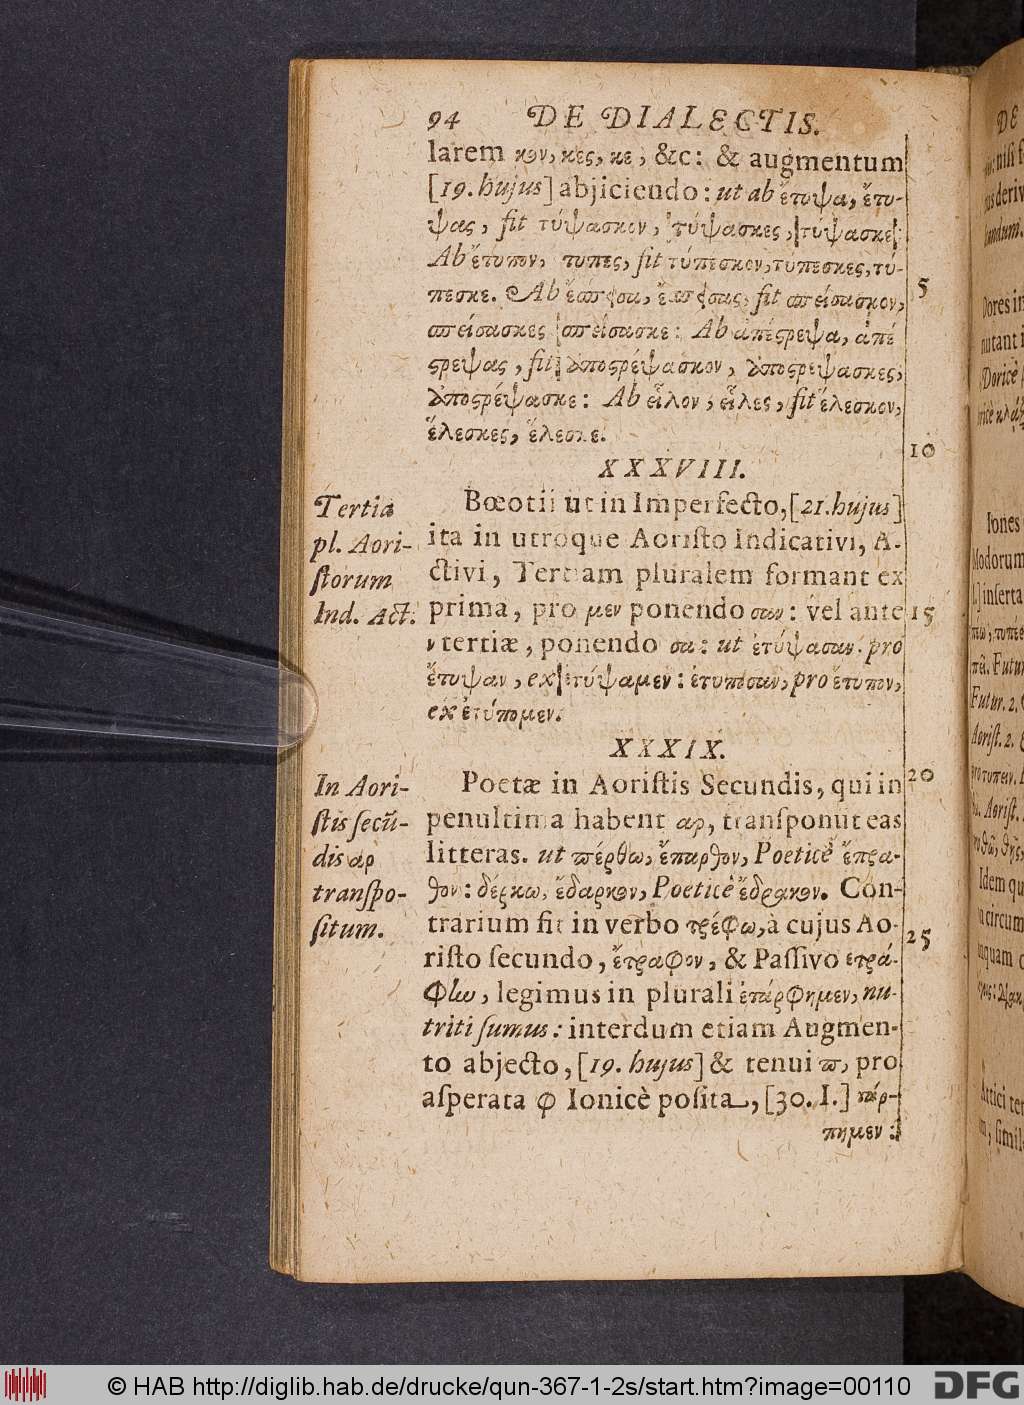 94 DE DIALECTIS.
larem κον, κες, κε, &c: & augmentum
[19. hujus] abjiciendo: ut ab ἔτυψα, ἔτυ-
ψας, fit τύψασκον, τύψασκες, τύψασκε:
Ab ἔτυπον, τυπες, fit τύπεσκον, τύπεσκες, τύ-
πεσκε. Ab ἔσπεισα, ἔσπεισας, fit σπείσασκον, 5
σπείσασκες σπείσασκε: Ab ἀπέςρεψα, ἀπέ
ςρεψας, fit ἀποςρέψασκον, ἀποςρέψασκες,
ἀποςρέψασκε: Ab εἷλον, εἷλες, fit ἕλεσκον,
ἕλεσκες, ἕλεσκε.
XXXVIII. 10
Tertia
pl. Aori-
ſtorum
Ind. Act.
Bœotii ut in Imperfecto, [21. hujus]
ita in utroque Aoriſto Indicativi, A-
ctivi, Tertiam pluralem formant ex
prima, pro μεν ponendo σαν: vel ante 15
ν tertiæ, ponendo σα: ut ἐτύψασαν. pro
ἔτυψαν, ex ἐτύψαμεν: ἐτυπόσαν, pro ἔτυπον,
ex ἐτύπομεν.
XXXIX.
In Aori-
ſtis ſecũ-
dis αρ
tranſpo-
ſitum.
Poetæ in Aoriſtis Secundis, qui in 20
penultima habent αρ, tranſponut eas
litteras. ut πέρθω, ἔπαρθον, Poeticè ἔπρα-
θον: δέρκω, ἔδαρκον, Poeticè ἔδρακον. Con-
trarium fit in verbo τρέφω, à cujus Ao-
riſto ſecundo, ἔτραφον, & Paſſivo ετρά- 25
φlω, legimus in plurali ἐτάρφημεν, nu-
triti ſumus: interdum etiam Augmen-
to abjecto, [19. hujus] & tenui π, pro
aſperata φ Ionicè poſita, [30. I.] τάρ-
πημεν:
DE
© HAB http://diglib.hab.de/drucke/qun-367-1-2s/start.htm?image=00110
DFG